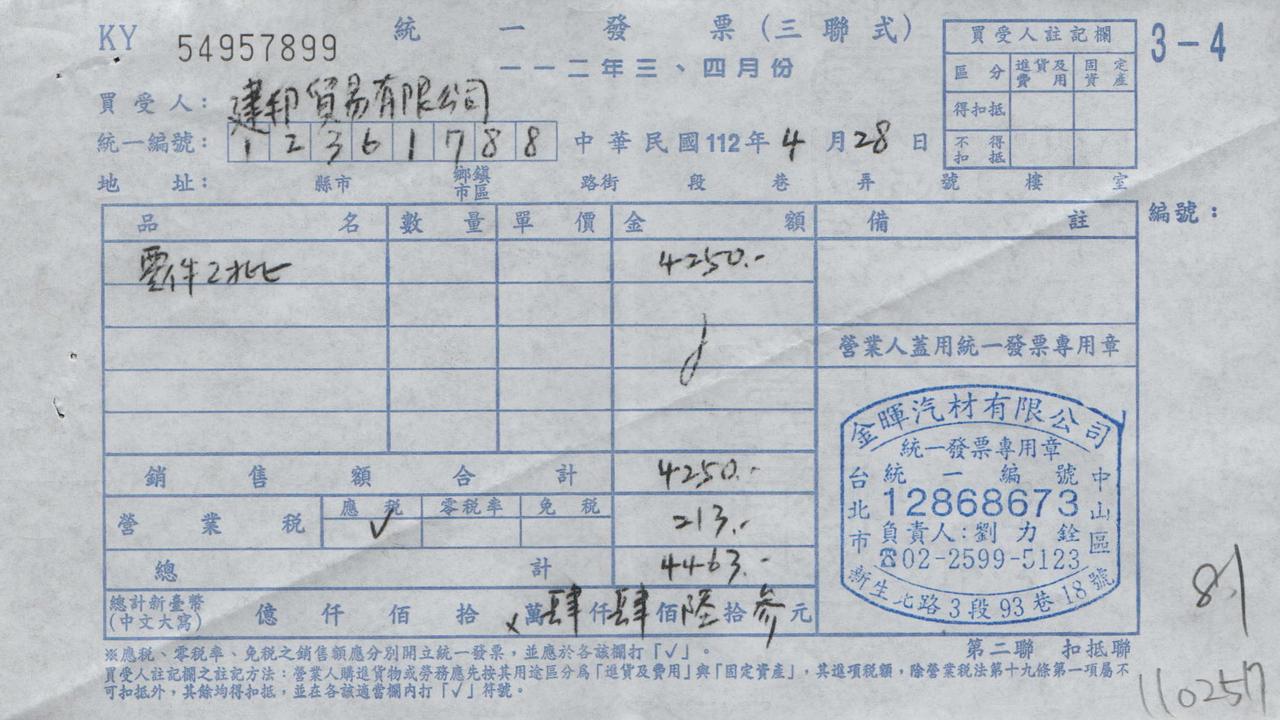 KY 54957899 統一發票(三聯式) 3-4
一一二年三、四月份
買受人註記欄
區分 進貨及費用 固定資產
得扣抵
不得扣抵
買受人: 建邦貿易有限公司
統一編號: 12361788 中華民國112年4月28日
地址: 縣市 鄉鎮市區 路街 段 巷 弄 號 樓 室
品名 數量 單價 金額 備註 編號:
零件乙批 4250.-
營業人蓋用統一發票專用章
銷售額合計 4250.-
營業稅 應稅 ✓ 零稅率 免稅 213.-
總計 4463.-
總計新臺幣(中文大寫) 億 仟 佰 拾 x萬 肆仟 肆佰 陸拾 參元
金暉汽材有限公司
統一發票專用章
統一編號
12868673
負責人:劉力銓
☎02-2599-5123
台北市 中山區
新生北路3段93巷18號
第二聯 扣抵聯
※應稅、零稅率、免稅之銷售額應分別開立統一發票,並應於各該欄打「✓」。
買受人註記欄之註記方法:營業人購進貨物或勞務應先按其用途區分為「進貨及費用」與「固定資產」,其進項稅額,除營業稅法第十九條第一項屬不
可扣抵外,其餘均得扣抵,並在各該適當欄內打「✓」符號。
110257